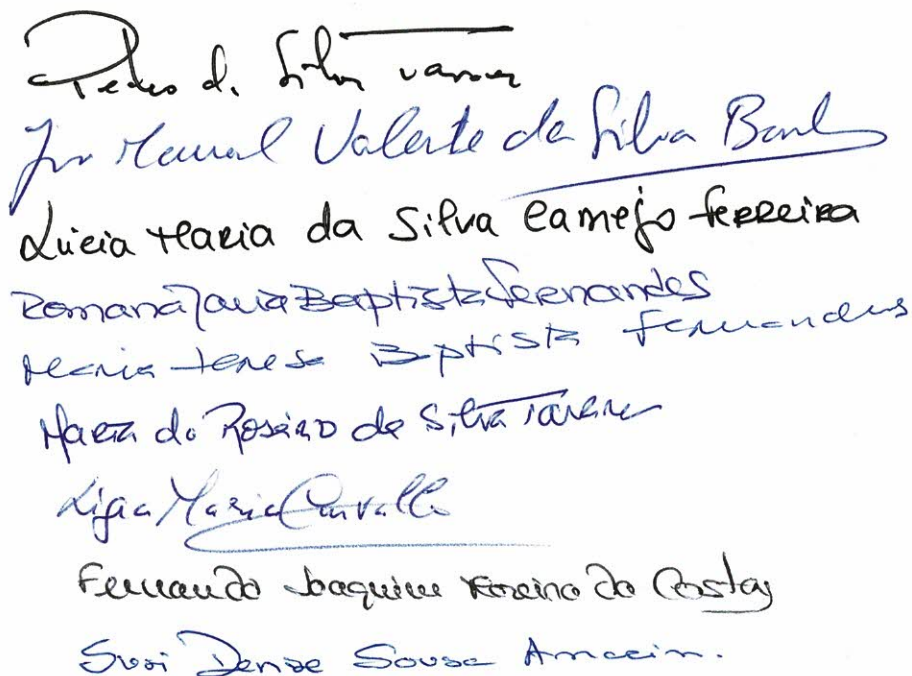 Pedro d. Silva Tavares
Manuel Valente da Silva
Lúcia Maria da Silva Camejo Ferreira
Romana Maria Baptista Fernandes
Maria Teresa Baptista Fernandes
Maria do Rosário da Silva Tavares
Ligia Maria Carvalho
Fernando Joaquim Pereira da Costa
Susi Denise Sousa